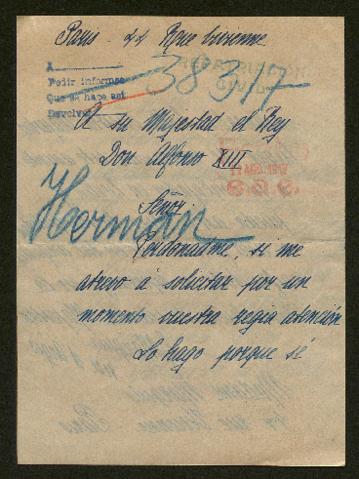 Paris 44 Rue Vivienne
A
Pedir informes
Que se hace así
Devolver
38317
REPATRIACIÓN
A su Majestad el Rey
Don Alfonso XIII
AGO. 1917
Señor.
Herman
Perdonadme, si me
atrevo á solicitar por un
momento vuestra regia atención
Lo hago porque sé